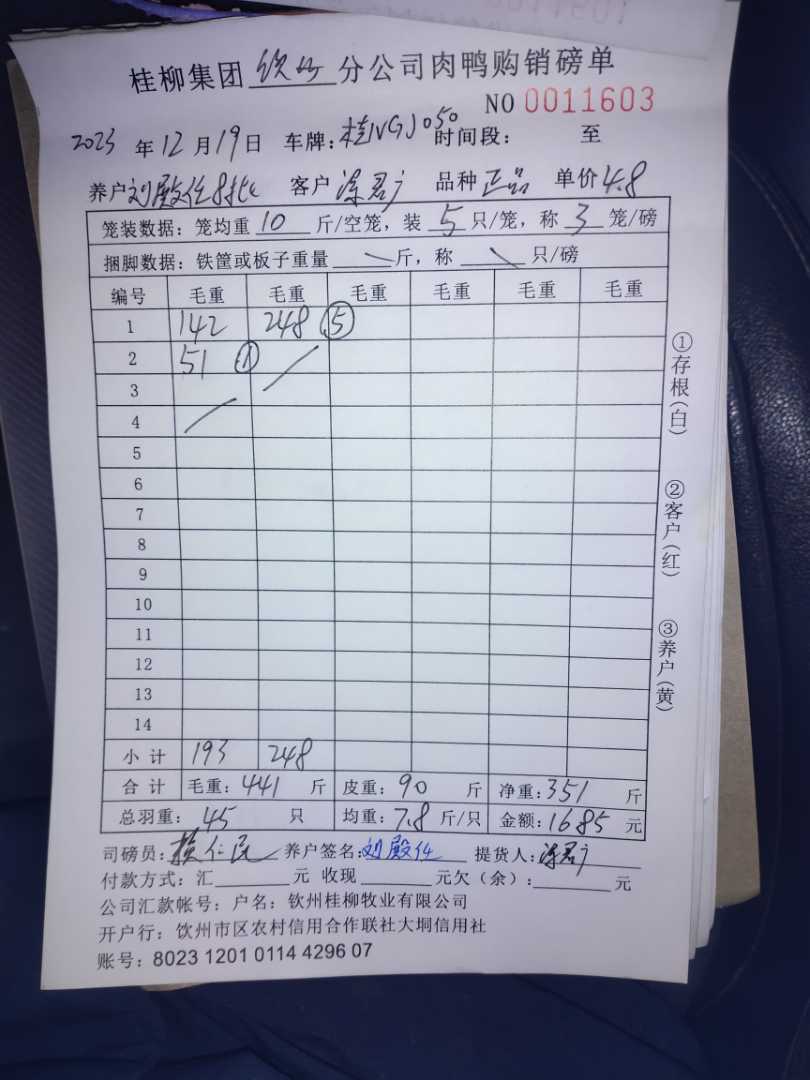 桂柳集团 钦州 分公司肉鸭购销磅单
NO 0011603
2023 年 12 月 19 日 车牌: 桂NGJ050 时间段: 至
养户 刘殿任8批 客户 涂君广 品种 正品 单价 4.8
笼装数据: 笼均重 10 斤/空笼, 装 5 只/笼, 称 3 笼/磅
捆脚数据: 铁筐或板子重量 斤, 称 只/磅
编号 毛重 毛重 毛重 毛重 毛重 毛重
1 142 248 ⑤
2 51 ①
3
4
5
6
7
8
9
10
11
12
13
14
小计 193 248
合计 毛重: 441 斤 皮重: 90 斤 净重: 351 斤
总羽重: 45 只 均重: 7.8 斤/只 金额: 1685 元
司磅员: 仁民 养户签名: 刘殿任 提货人: 涂君广
付款方式: 汇 元 收现 元欠(余): 元
公司汇款帐号: 户名: 钦州桂柳牧业有限公司
开户行: 饮州市区农村信用合作联社大垌信用社
账号: 8023 1201 0114 4296 07
①存根(白)
②客户(红)
③养户(黄)